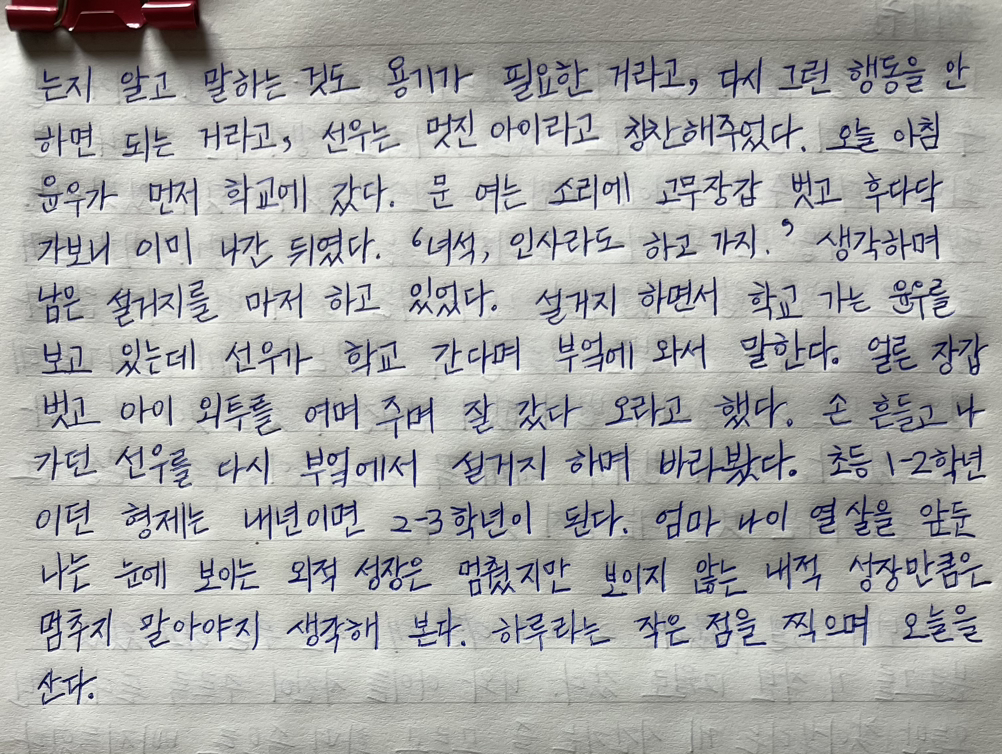 는지 알고 말하는 것도 용기가 필요한 거라고, 다시 그런 행동을 안
하면 되는 거라고, 선우는 멋진 아이라고 칭찬해주었다. 오늘 아침
윤우가 먼저 학교에 갔다. 문 여는 소리에 고무장갑 벗고 후다닥
가보니 이미 나간 뒤였다. '녀석, 인사라도 하고 가지.' 생각하며
남은 설거지를 마저 하고 있었다. 설거지 하면서 학교 가는 윤우를
보고 있는데 선우가 학교 간다며 부엌에 와서 말한다. 얼른 장갑
벗고 아이 외투를 여며 주며 잘 갔다 오라고 했다. 손 흔들고 나
가던 선우를 다시 부엌에서 설거지 하며 바라봤다. 초등 1-2학년
이던 형제는 내년이면 2-3학년이 된다. 엄마 나이 열 살을 앞둔
나는 눈에 보이는 외적 성장은 멈췄지만 보이지 않는 내적 성장만큼은
멈추지 말아야지 생각해 본다. 하루라는 작은 점을 찍으며 오늘을
산다.